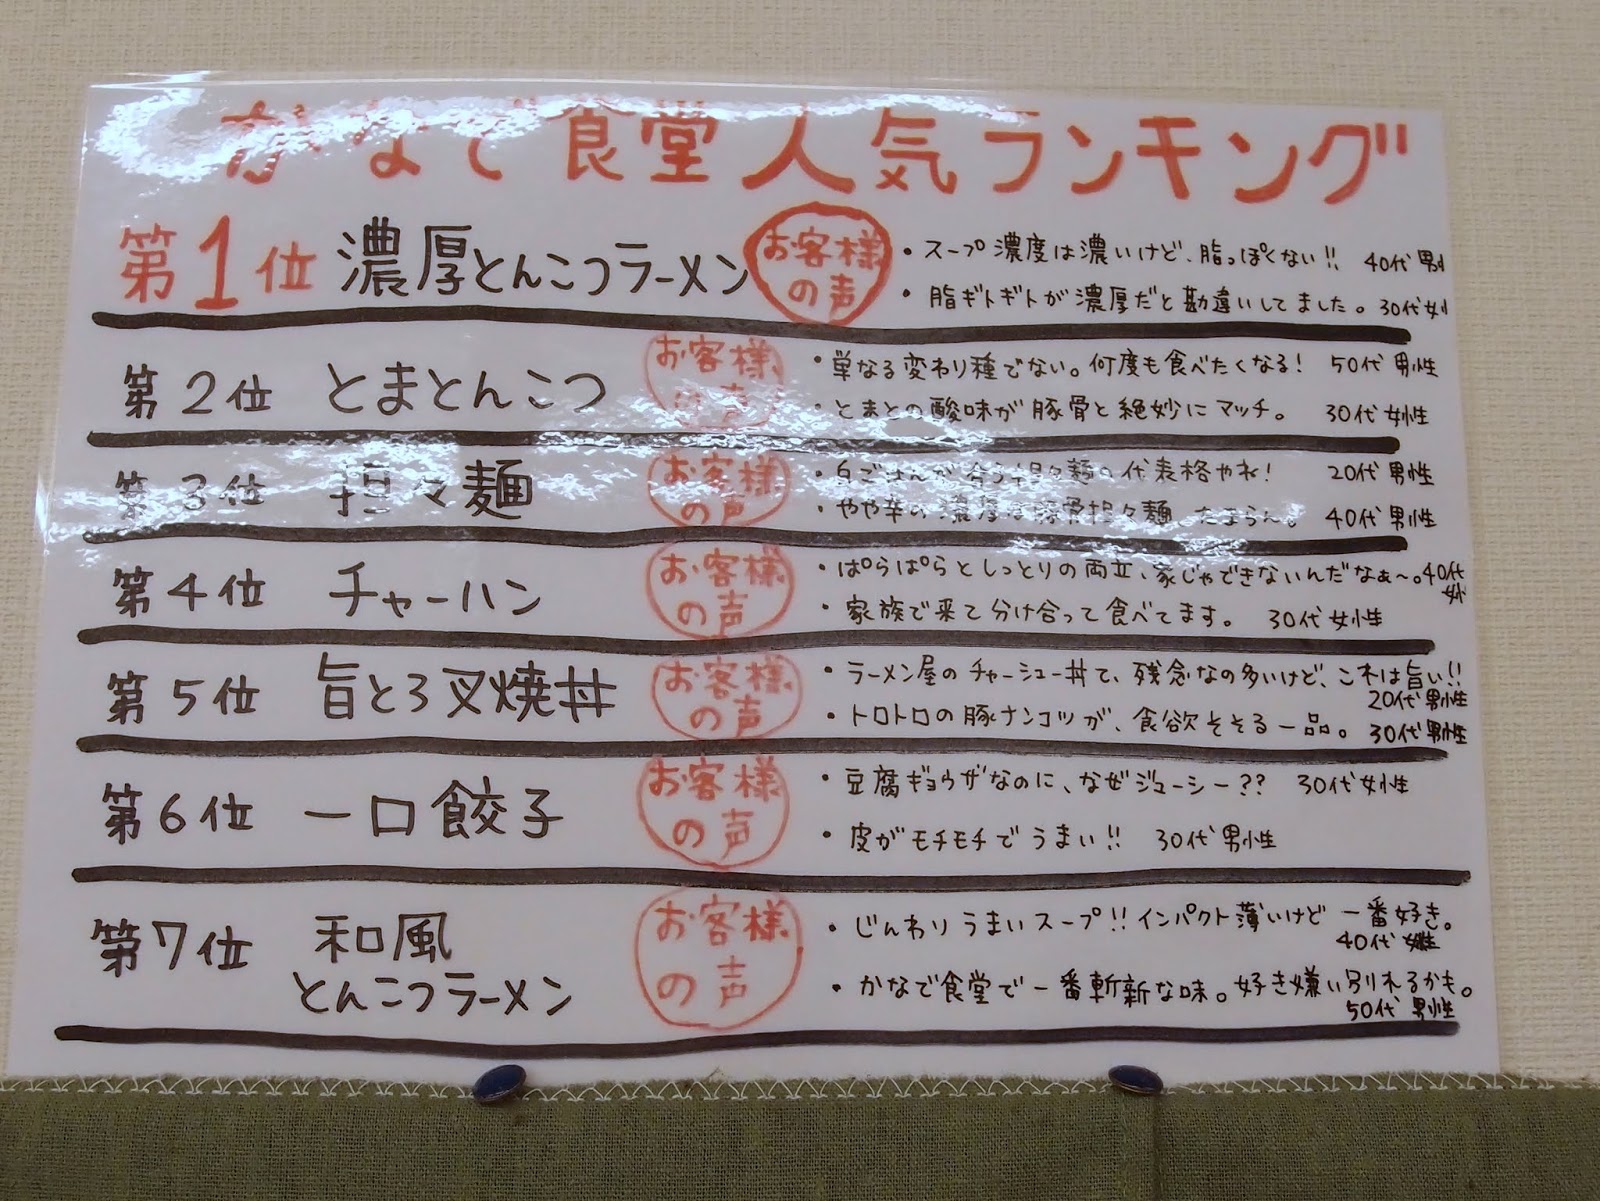 かなで食堂人気ランキング
第1位 濃厚とんこつラーメン お客様の声
・スープ濃度は濃いけど、脂っぽくない!! 40代男
・脂ギトギトが濃厚だと勘違いしてました。 30代女
第2位 とまとんこつ お客様の声
・単なる変わり種でない。何度も食べたくなる! 50代男性
・とまとの酸味が豚骨と絶妙にマッチ。 30代女性
第3位 担々麺 お客様の声
・白ごはんが合う担々麺の代表格やね! 20代男性
・やや辛の濃厚な豚骨担々麺、たまらん。 40代男性
第4位 チャーハン お客様の声
・ぱらぱらとしっとりの両立、家じゃできないんだなぁ〜。40代女
・家族で来て分け合って食べてます。 30代女性
第5位 旨とろ叉焼丼 お客様の声
・ラーメン屋のチャーシュー丼て、残念なの多いけど、これは旨い!! 20代男性
・トロトロの豚ナンコツが、食欲そそる一品。 30代男性
第6位 一口餃子 お客様の声
・豆腐ギョウザなのに、なぜジューシー?? 30代女性
・皮がモチモチでうまい!! 30代男性
第7位 和風とんこつラーメン お客様の声
・じんわりうまいスープ!!インパクト薄いけど一番好き。 40代女性
・かなで食堂で一番斬新な味。好き嫌い別れるかも。 50代男性